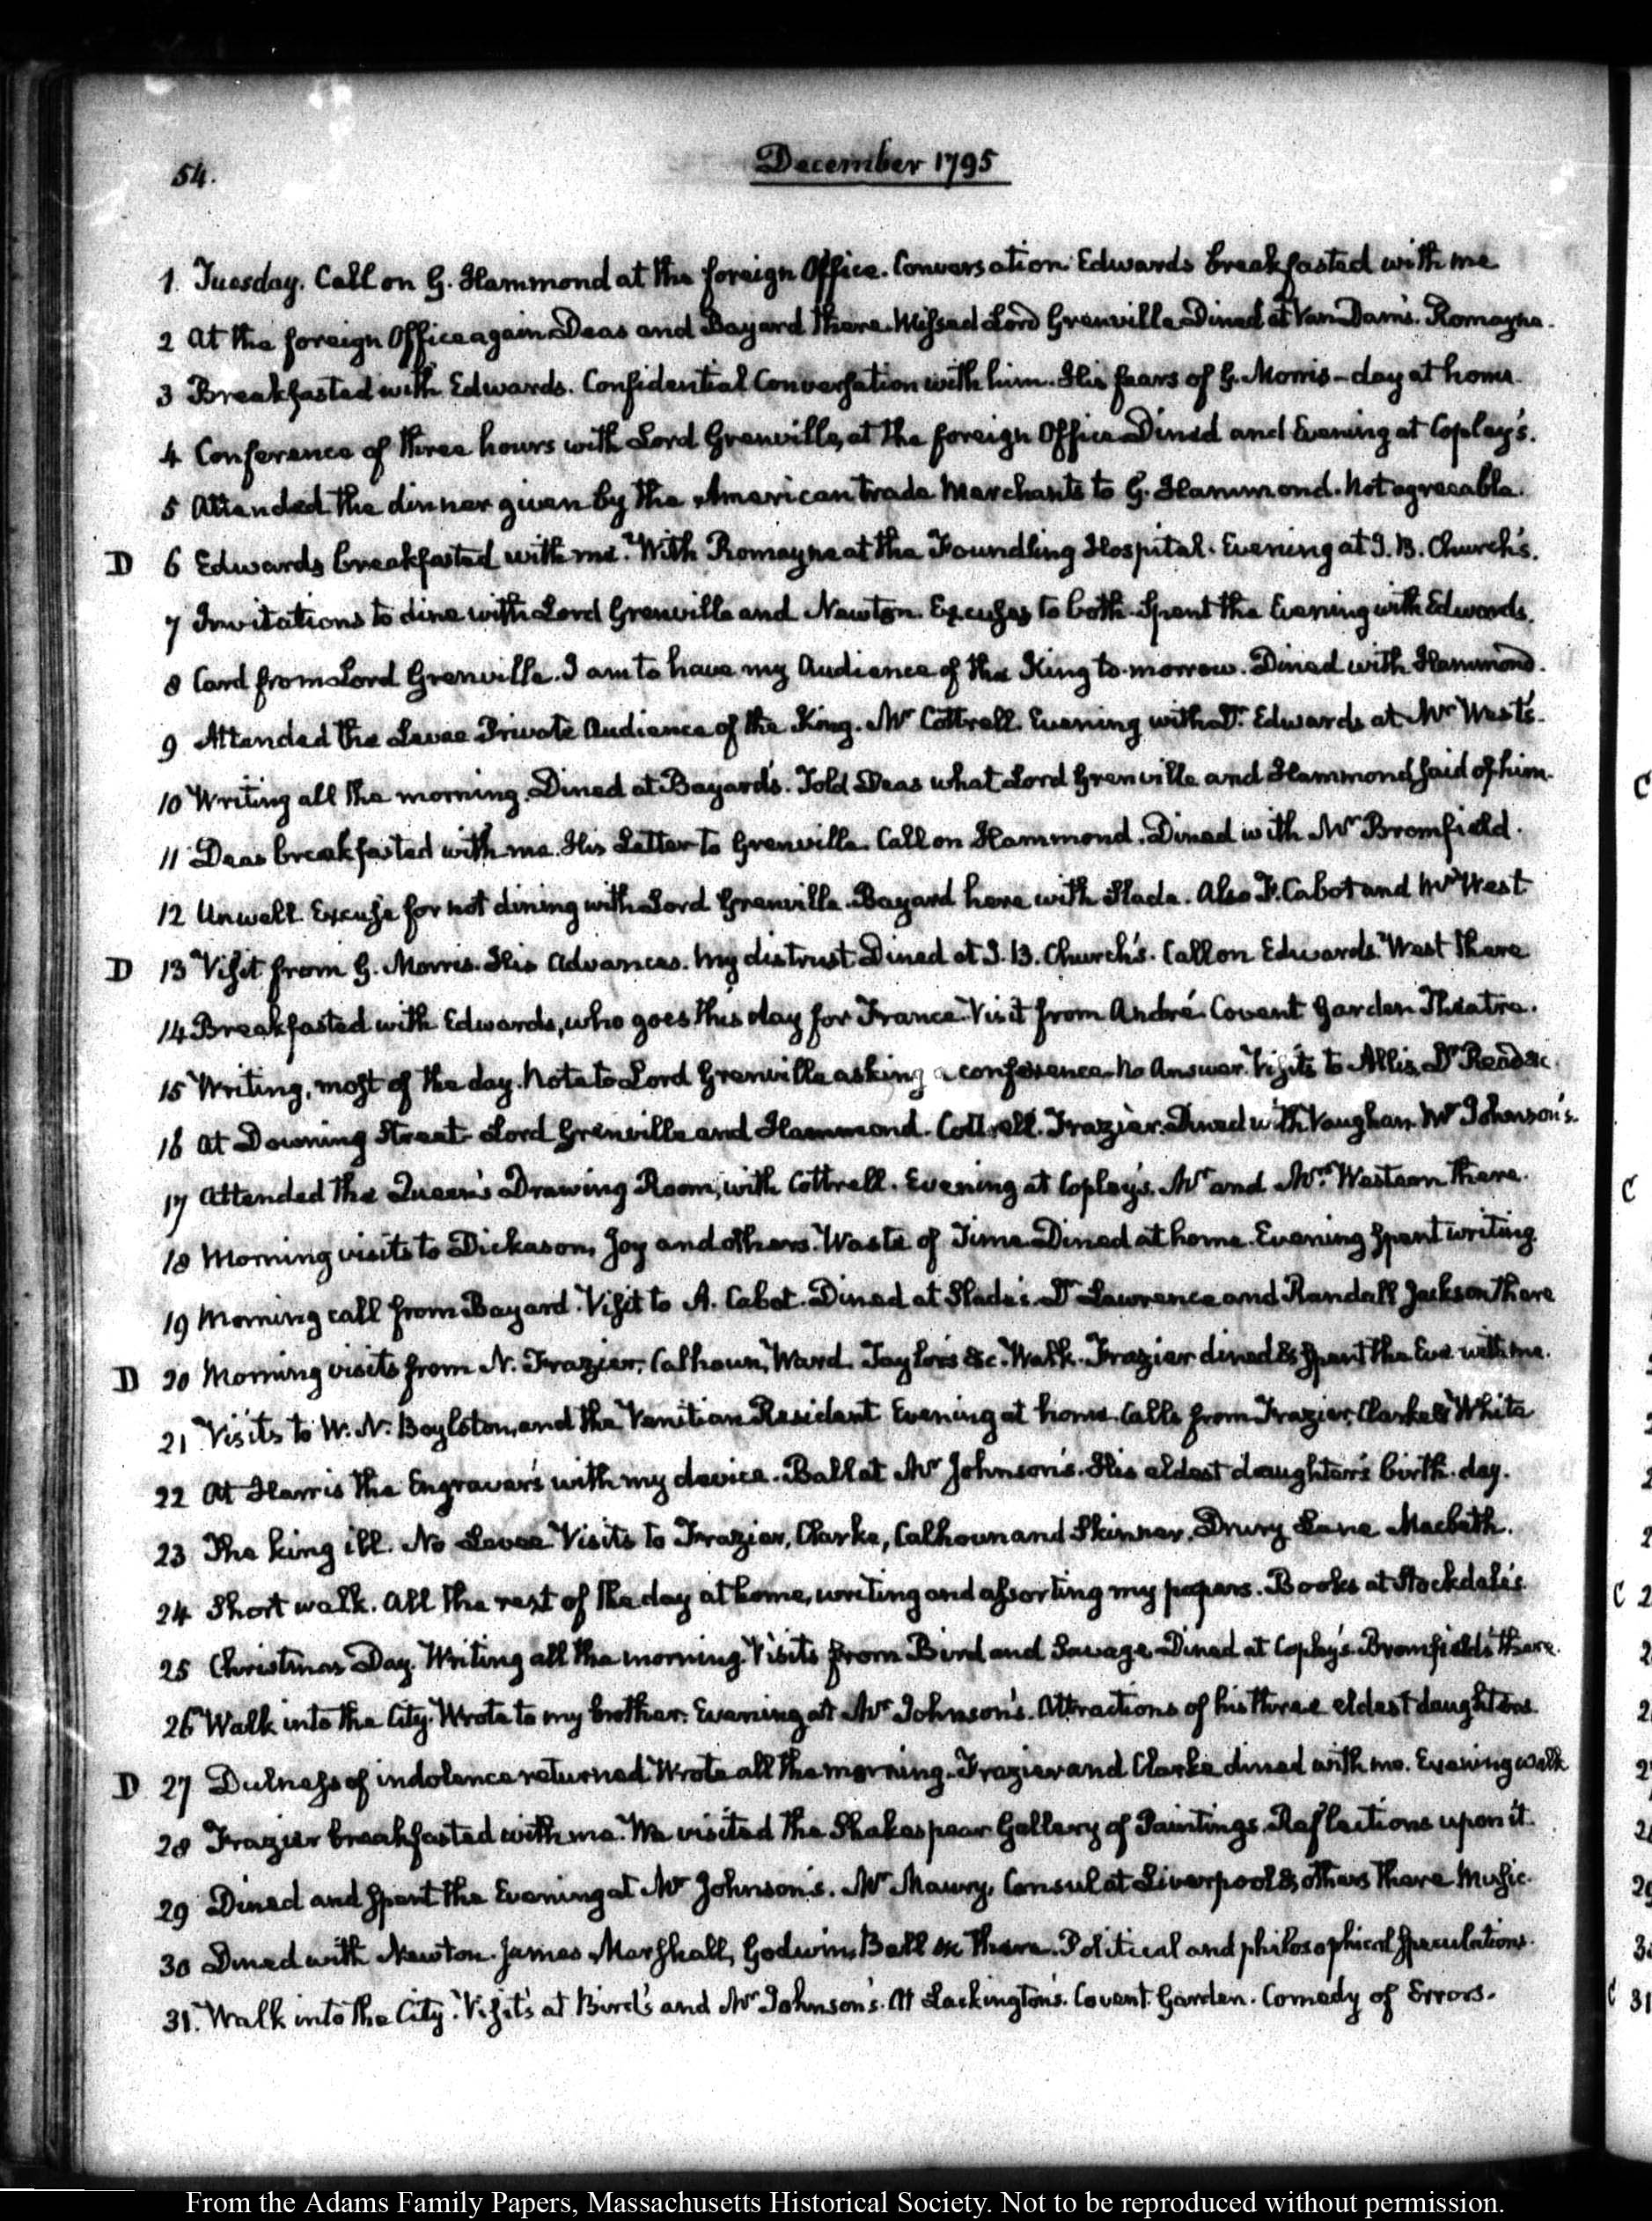 54.
December 1795
1. Tuesday. Call on G. Hammond at the foreign Office. Conversation Edwards breakfasted with me
2 At the foreign Office again Deas and Bayard there. Missed Lord Grenville Dined at Van Dam's. Romayne.
3 Breakfasted with Edwards. Confidential Conversation with him. His fears of G. Morris - day at home.
4 Conference of three hours with Lord Grenville, at the foreign Office Dined and Evening at Copley's.
5 Attended the dinner given by the American trade Merchants to G. Hammond. Not agreeable.
D 6 Edwards breakfasted with me. With Romayne at the Foundling Hospital. Evening at J. B. Church's.
7 Invitations to dine with Lord Grenville and Newton. Excuses to both. Spent the Evening with Edwards.
8 Card from Lord Grenville. I am to have my Audience of the King to-morrow. Dined with Hammond.
9 Attended the Levee Private Audience of the King. Mr Cottrell. Evening with Dr. Edwards at Mr West's.
10 Writing all the morning. Dined at Bayard's. Told Deas what Lord Grenville and Hammond said of him.
11 Deas breakfasted with me. His Letter to Grenville. Call on Hammond. Dined with Mr Bromfield.
12 Unwell. Excuse for not dining with Lord Grenville. Bayard here with Slade. Also F. Cabot and Mr West
D 13 Visit from G. Morris. His Advances. My distrust Dined at J. B. Church's. Call on Edwards. West there
14 Breakfasted with Edwards, who goes this day for France. Visit from André. Covent Garden Theatre.
15 Writing, most of the day. Note to Lord Grenville asking a conference. No Answer. Visits to Allis, Dr
16 At Downing Street Lord Grenville and Hammond. Cottrell. Frazier. Dined with Vaughan. Mr Johnson's.
17 Attended the Queen's Drawing Room, with Cottrell. Evening at Copley's. Mr and Mrs Western there.
18 Morning visits to Dickason, Joy and others. Waste of Time Dined at home. Evening spent writing.
19 Morning call from Bayard. Visit to A. Cabot. Dined at Slade's. Dr Lawrence and Randall Jackson there
D 20 Morning visits from N. Frazier, Calhoun, Ward. Taylors &c. Walk. Frazier dined & spent the Eve. with me.
21 Visits to W. N. Boylston, and the Venitian Resident. Evening at home. Calls from Frazier, Clarke & White
22 At Harris the Engraver's with my device. Ball at Mr Johnson's. His eldest daughter's birth-day.
23 The king ill. No Levee Visits to Frazier, Clarke, Calhoun and Skinner. Drury Lane Macbeth.
24 Short walk. All the rest of the day at home, writing and assorting my papers. Books at Stockdale's
25 Christmas Day. Writing all the morning. Visits from Bird and Savage Dined at Copley's. Bromfields there.
26 Walk into the City. Wrote to my brother. Evening at Mr Johnson's. Attractions of his three eldest daughters.
D 27 Dulness of indolence returned. Wrote all the morning. Frazier and Clarke dined with me. Evening walk
28 Frazier breakfasted with me. We visited the Shakespear Gallery of Paintings. Reflections upon it.
29 Dined and spent the Evening at Mr Johnson's. Mr Maury, Consul at Liverpool & others there Music.
30 Dined with Newton. James Marshall, Godwin, Bell &c there. Political and philosophical speculations.
31. Walk into the City. Visits at Bird's and Mr Johnson's. At Lackington's. Covent Garden. Comedy of Errors.
From the Adams Family Papers, Massachusetts Historical Society. Not to be reproduced without permission.